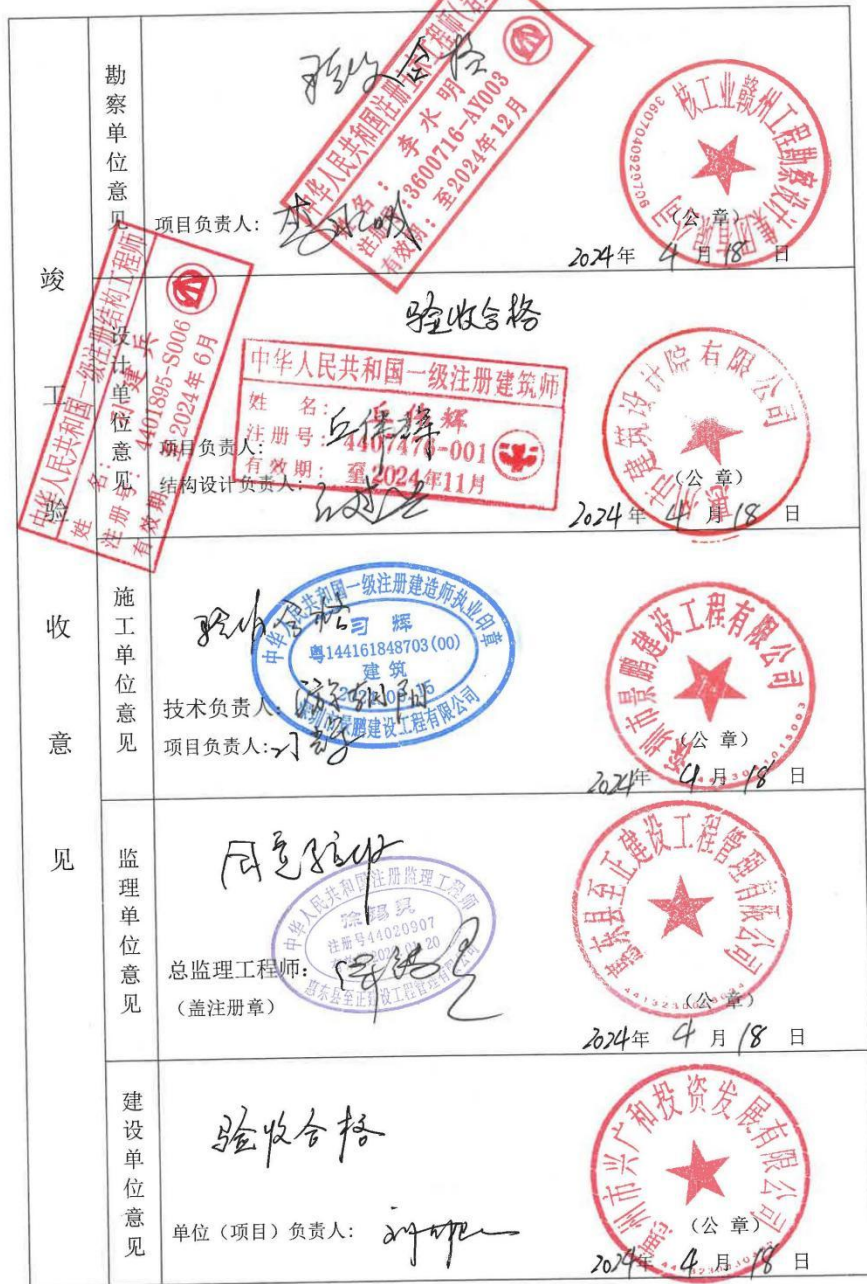 竣工验收意见
勘察单位意见
验收合格
中华人民共和国注册土木工程师(岩
姓名：李水明
注册号：3600716-AY003
有效期：至2024年12月
项目负责人：李水明
核工业赣州工程勘察设计集团有限公司
3607040920706
(公章)
2024年 4月18日
设计单位意见
验收合格
中华人民共和国一级注册结构工程师
姓名：
注册号：4401895-S006
有效期：至2024年6月
中华人民共和国一级注册建筑师
姓名：
注册号：4407478-001
有效期：至2024年11月
项目负责人：
结构设计负责人：
惠州市建筑设计院有限公司
(公章)
2024年 4月18日
施工单位意见
验收合格
中华人民共和国一级注册建造师执业印章
习辉
粤144161848703(00)
建筑
深圳市景鹏建设工程有限公司
技术负责人：
项目负责人：习辉
深圳市景鹏建设工程有限公司
(公章)
2024年 4月18日
监理单位意见
同意验收
中华人民共和国注册监理工程师
注册号44020907
惠东县至正建设工程管理有限公司
总监理工程师：
(盖注册章)
惠东县至正建设工程管理有限公司
(公章)
2024年 4月18日
建设单位意见
验收合格
单位（项目）负责人：
惠州市兴广和投资发展有限公司
(公章)
2024年 4月18日